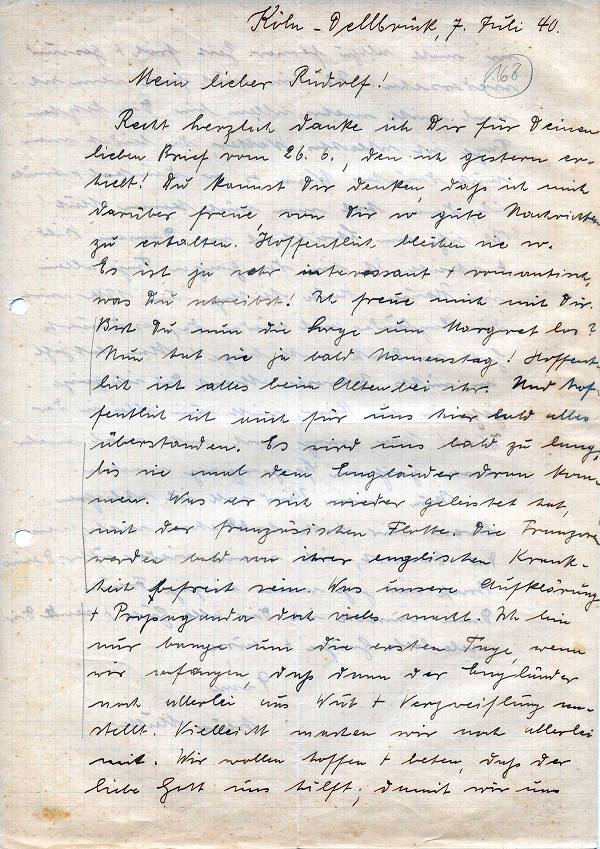 Köln - Dellbrück, 7. Juli 40.
168
Mein lieber Rudolf!
Recht herzlich danke ich Dir für Deinen
lieben Brief vom 26.6., den ich gestern er-
hielt! Du kannst Dir denken, daß ich mich
darüber freue von Dir so gute Nachrichten
zu erhalten. Hoffentlich bleiben sie so.
Es ist ja sehr interessant + romantisch,
was Du schreibst! Ich freue mich mit Dir.
Bist Du nun die Sorge um Margret los?
Nun hat sie ja bald Namenstag! Hoffent-
lich ist alles beim Alten bei ihr. Und hof-
fentlich ist auch für uns hier bald alles
überstanden. Es wird uns bald zu lang,
bis sie mal dem Engländer dran kom-
men. Was er sich wieder geleistet hat,
mit der französischen Flotte. Die Franzosen
werden bald von ihrer englischen Krank-
heit befreit sein. Was unsere Aufklärung
+ Propaganda doch vieles macht. Ich bin
nur bange um die ersten Tage, wenn
wir anfangen, daß dann der Engländer
noch allerlei aus Wut + Verzweiflung an-
stellt. Vielleicht machen wir noch allerlei
mit. Wir wollen hoffen + beten, daß der
liebe Gott uns hilft, damit wir uns